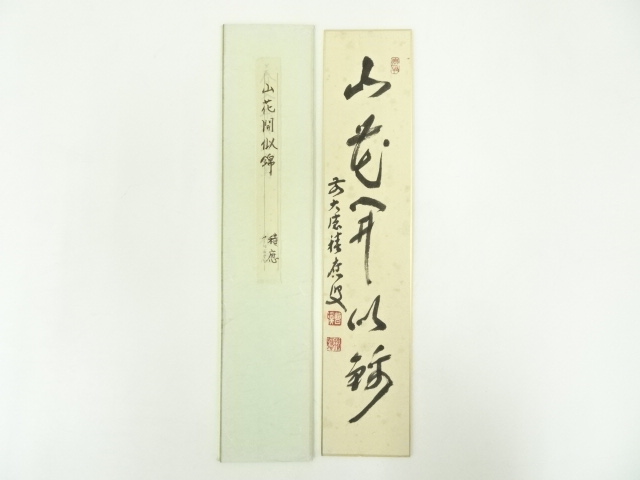 山花開似錦
前大徳積應叟
山花開似錦
積應